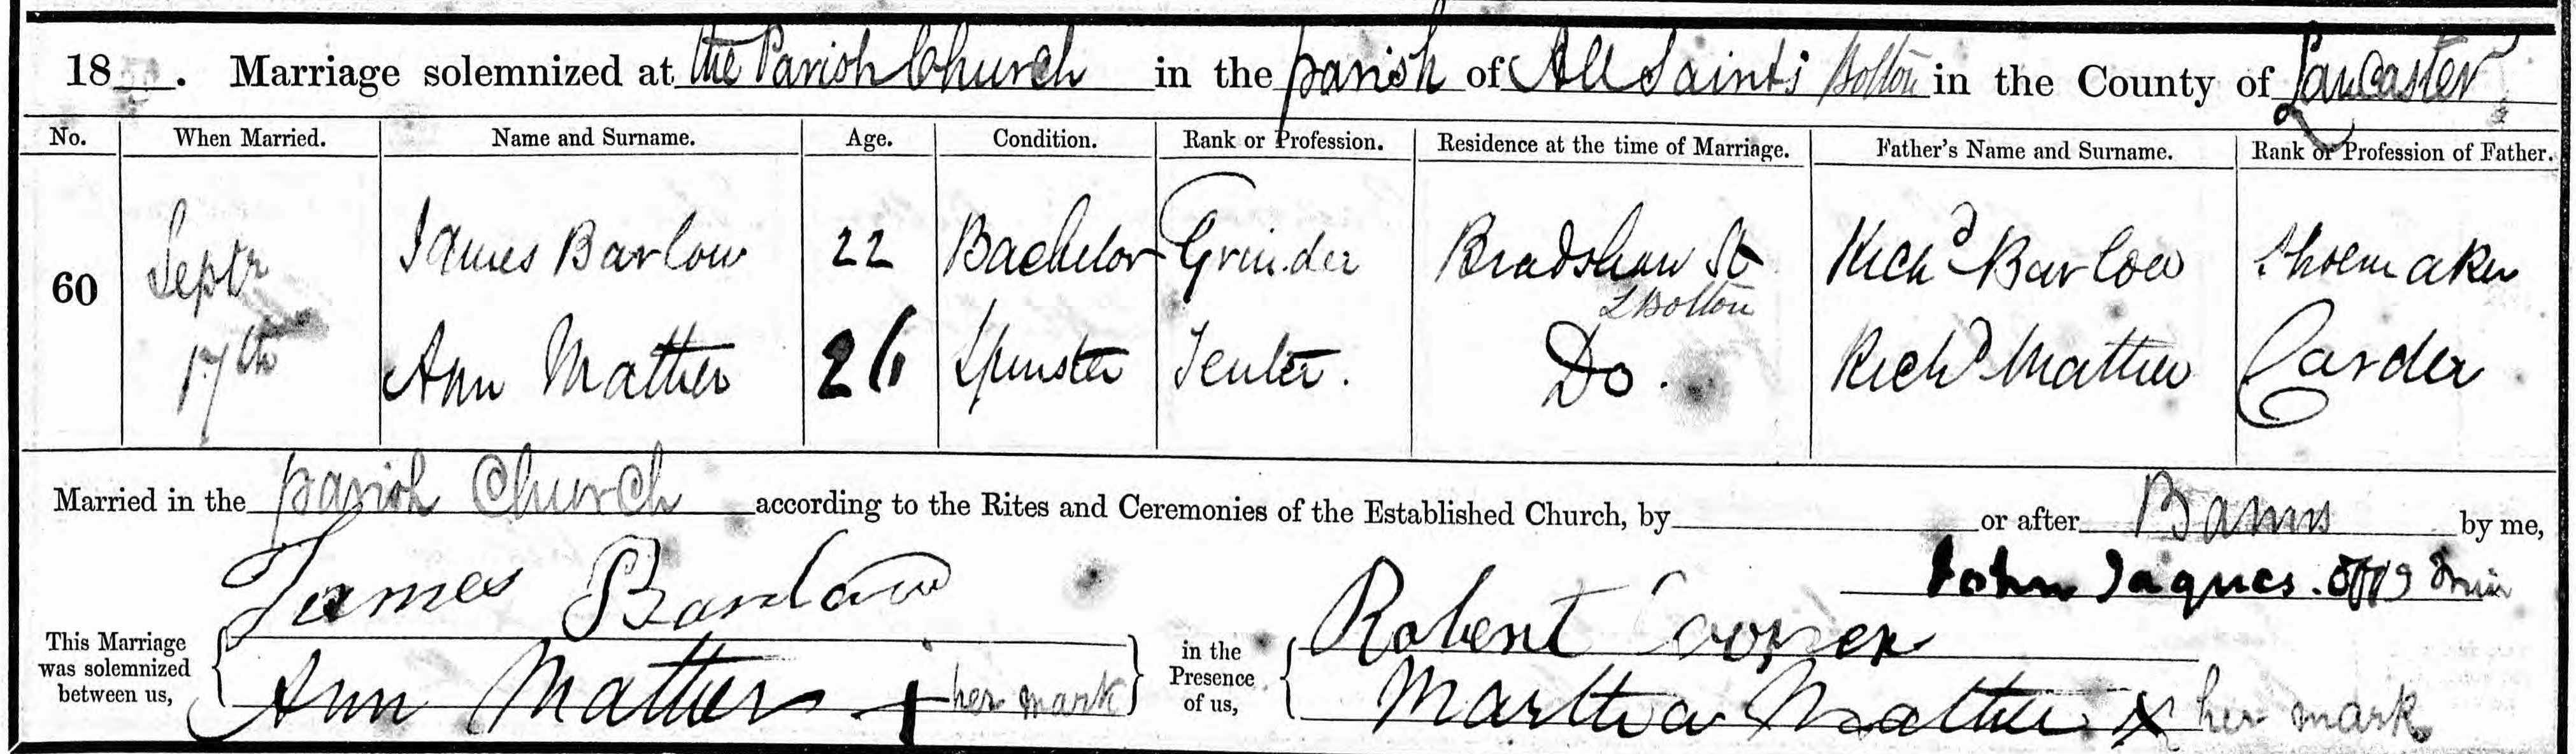 18 . Marriage solemnized at the Parish Church in the parish of All Saints Bolton in the County of Lancaster
No. When Married. Name and Surname. Age. Condition. Rank or Profession. Residence at the time of Marriage. Father's Name and Surname. Rank or Profession of Father.
60 Septr 17th
James Barlow 22 Bachelor Grinder Bradshaw St L Bolton Richd Barlow Shoemaker
Ann Mather 26 Spinster Tenter. Do. Richd Mather Carder
Married in the parish Church according to the Rites and Ceremonies of the Established Church, by or after Banns by me,
John Jaques. Offg Min
This Marriage was solemnized between us,
James Barlow
Ann Mather + her mark
in the Presence of us,
Robert
Martha Mather X her mark